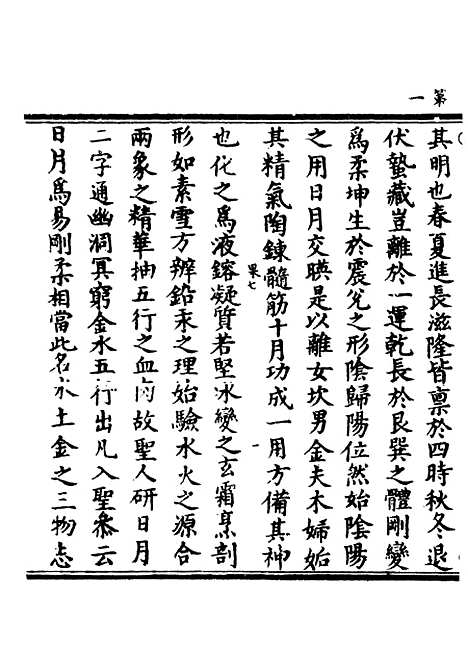 第一
其明也春夏進長滋隆皆稟於四時秋冬退
伏蟄藏豈離於一運乾長於艮巽之體剛變
爲柔坤生於震兊之形陰歸陽位然始陰陽
之用日月交暎是以離女坎男金夫木婦姤
其精氣陶鍊髓筋十月功成一用方備其神
果七
也化之爲液鎔凝質若堅冰變之玄霜烹剖
形如素雪方辨鉛汞之理始驗水火之源合
兩象之精華抽五行之血卤故聖人研日月
二字通幽洞冥窮金水五行出凡入聖叅云
日月爲易剛柔相當此名水土金之三物志